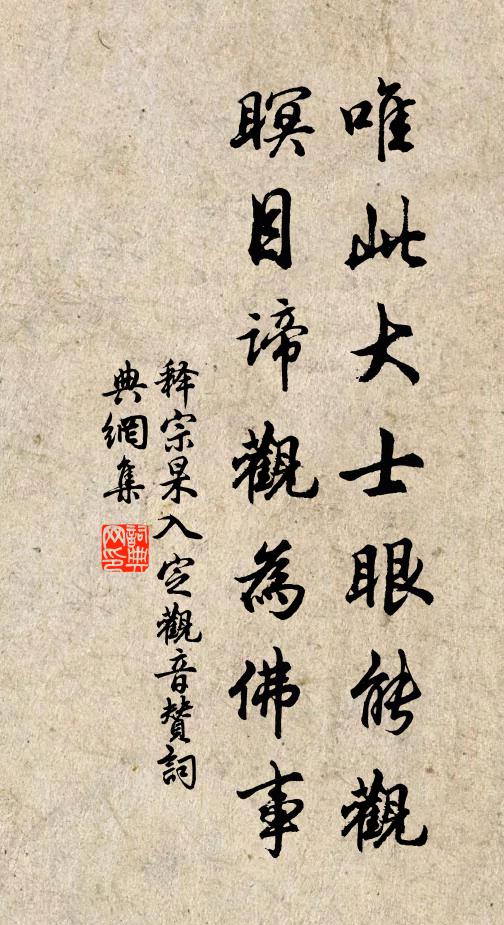 唯此大士眼能觀
瞑目諦觀為佛事
释宗杲入定觀音赞詞
典網集
詞典
网印